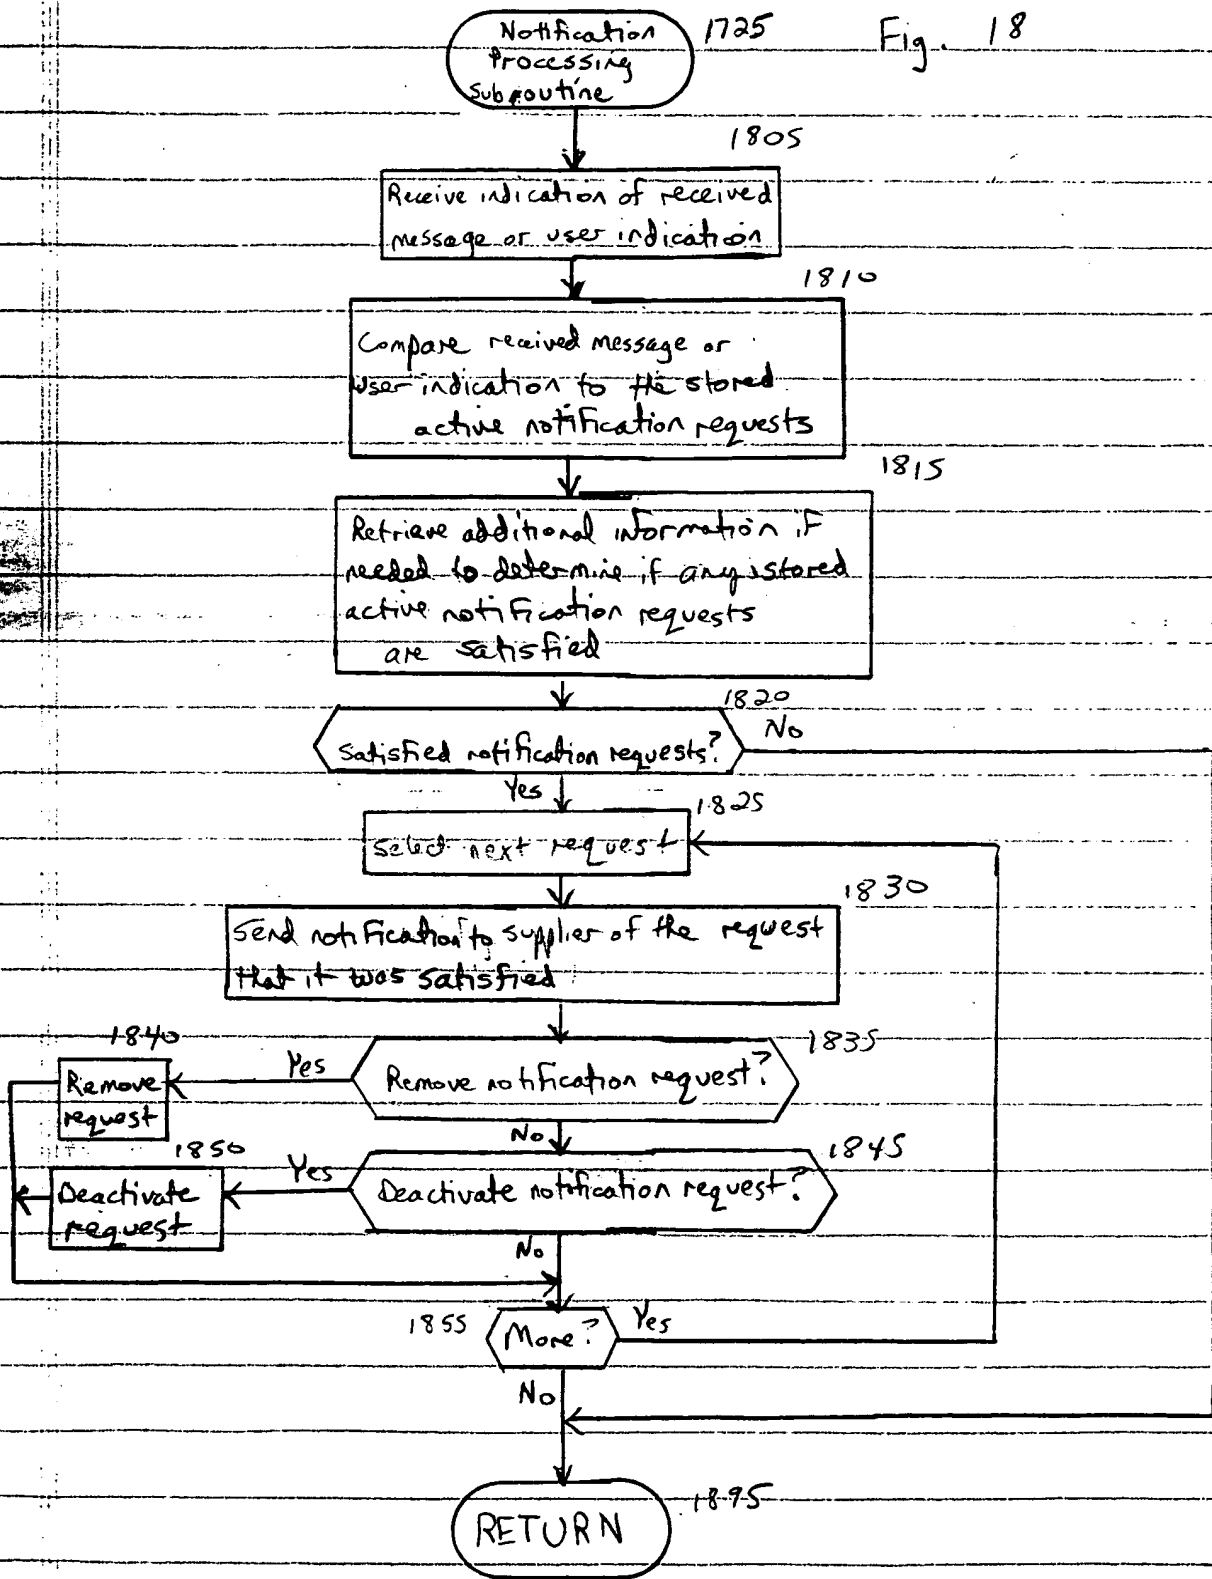 Notification
Processing
Subroutine
1725
Fig. 18
1805
Receive indication of received
message or user indication
1810
Compare received message or
user indication to the stored
active notification requests
1815
Retrieve additional information if
needed to determine if any stored
active notification requests
are satisfied
1820
Satisfied notification requests?
No
Yes
1825
Select next request
1830
Send notification to supplier of the request
that it was satisfied
1835
Remove notification request?
Yes
1840
Remove
request
No
1845
Deactivate notification request?
Yes
1850
Deactivate
request
No
1855
More?
Yes
No
1895
RETURN